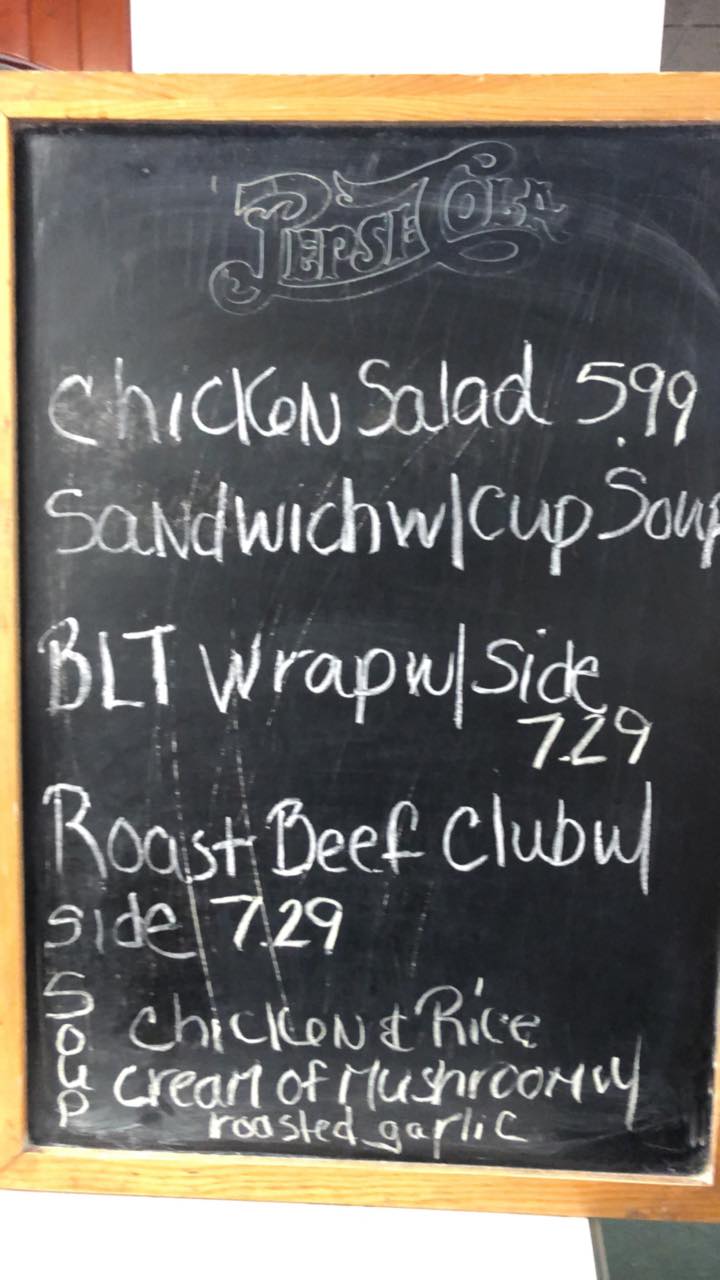 PEPSI COLA
Chicken Salad 5.99
Sandwich w/ Cup Soup
BLT Wrap w/ Side
7.29
Roast Beef Club w/
side 7.29
Soup
Chicken & Rice
Cream of Mushroom w/
roasted garlic